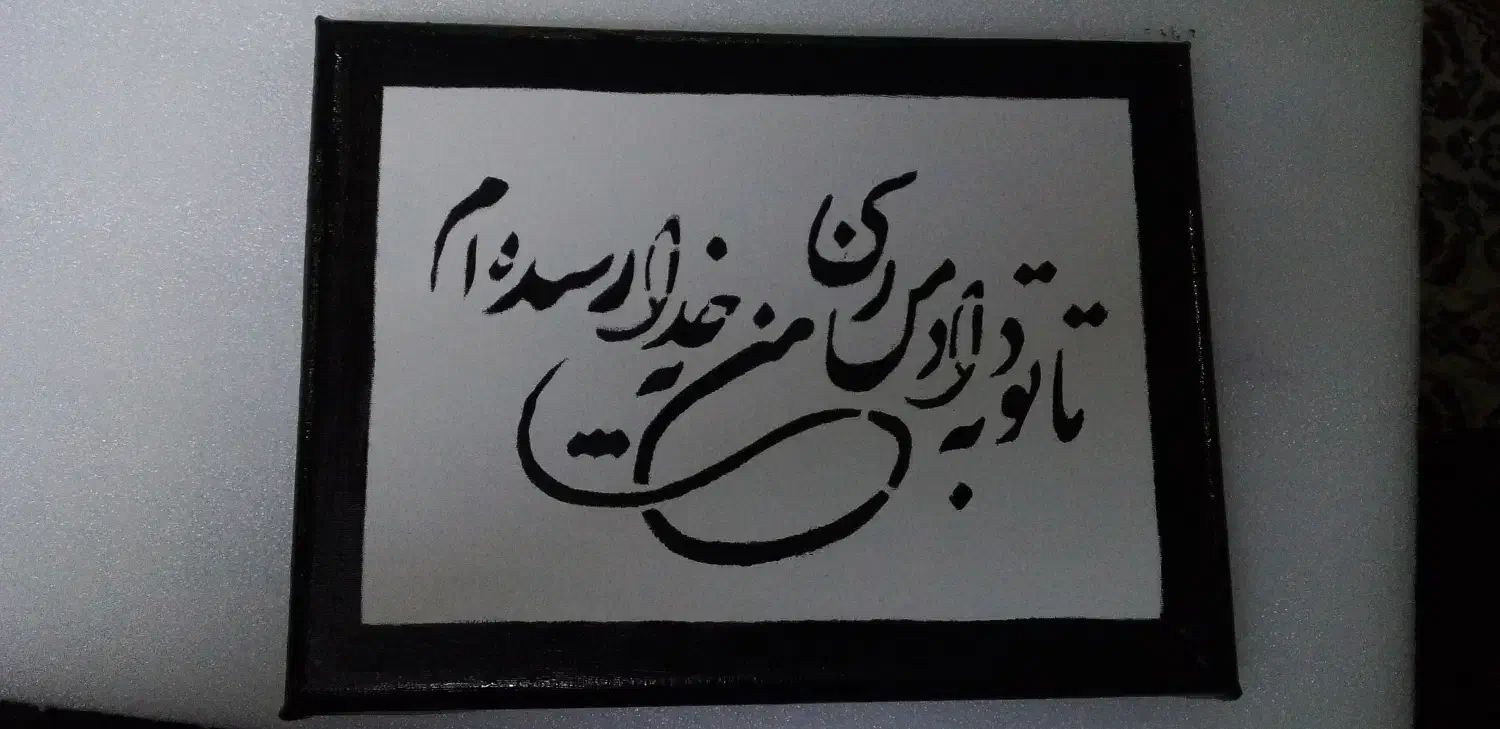 تا تو به داد من رسی من به خدا رسیده ام